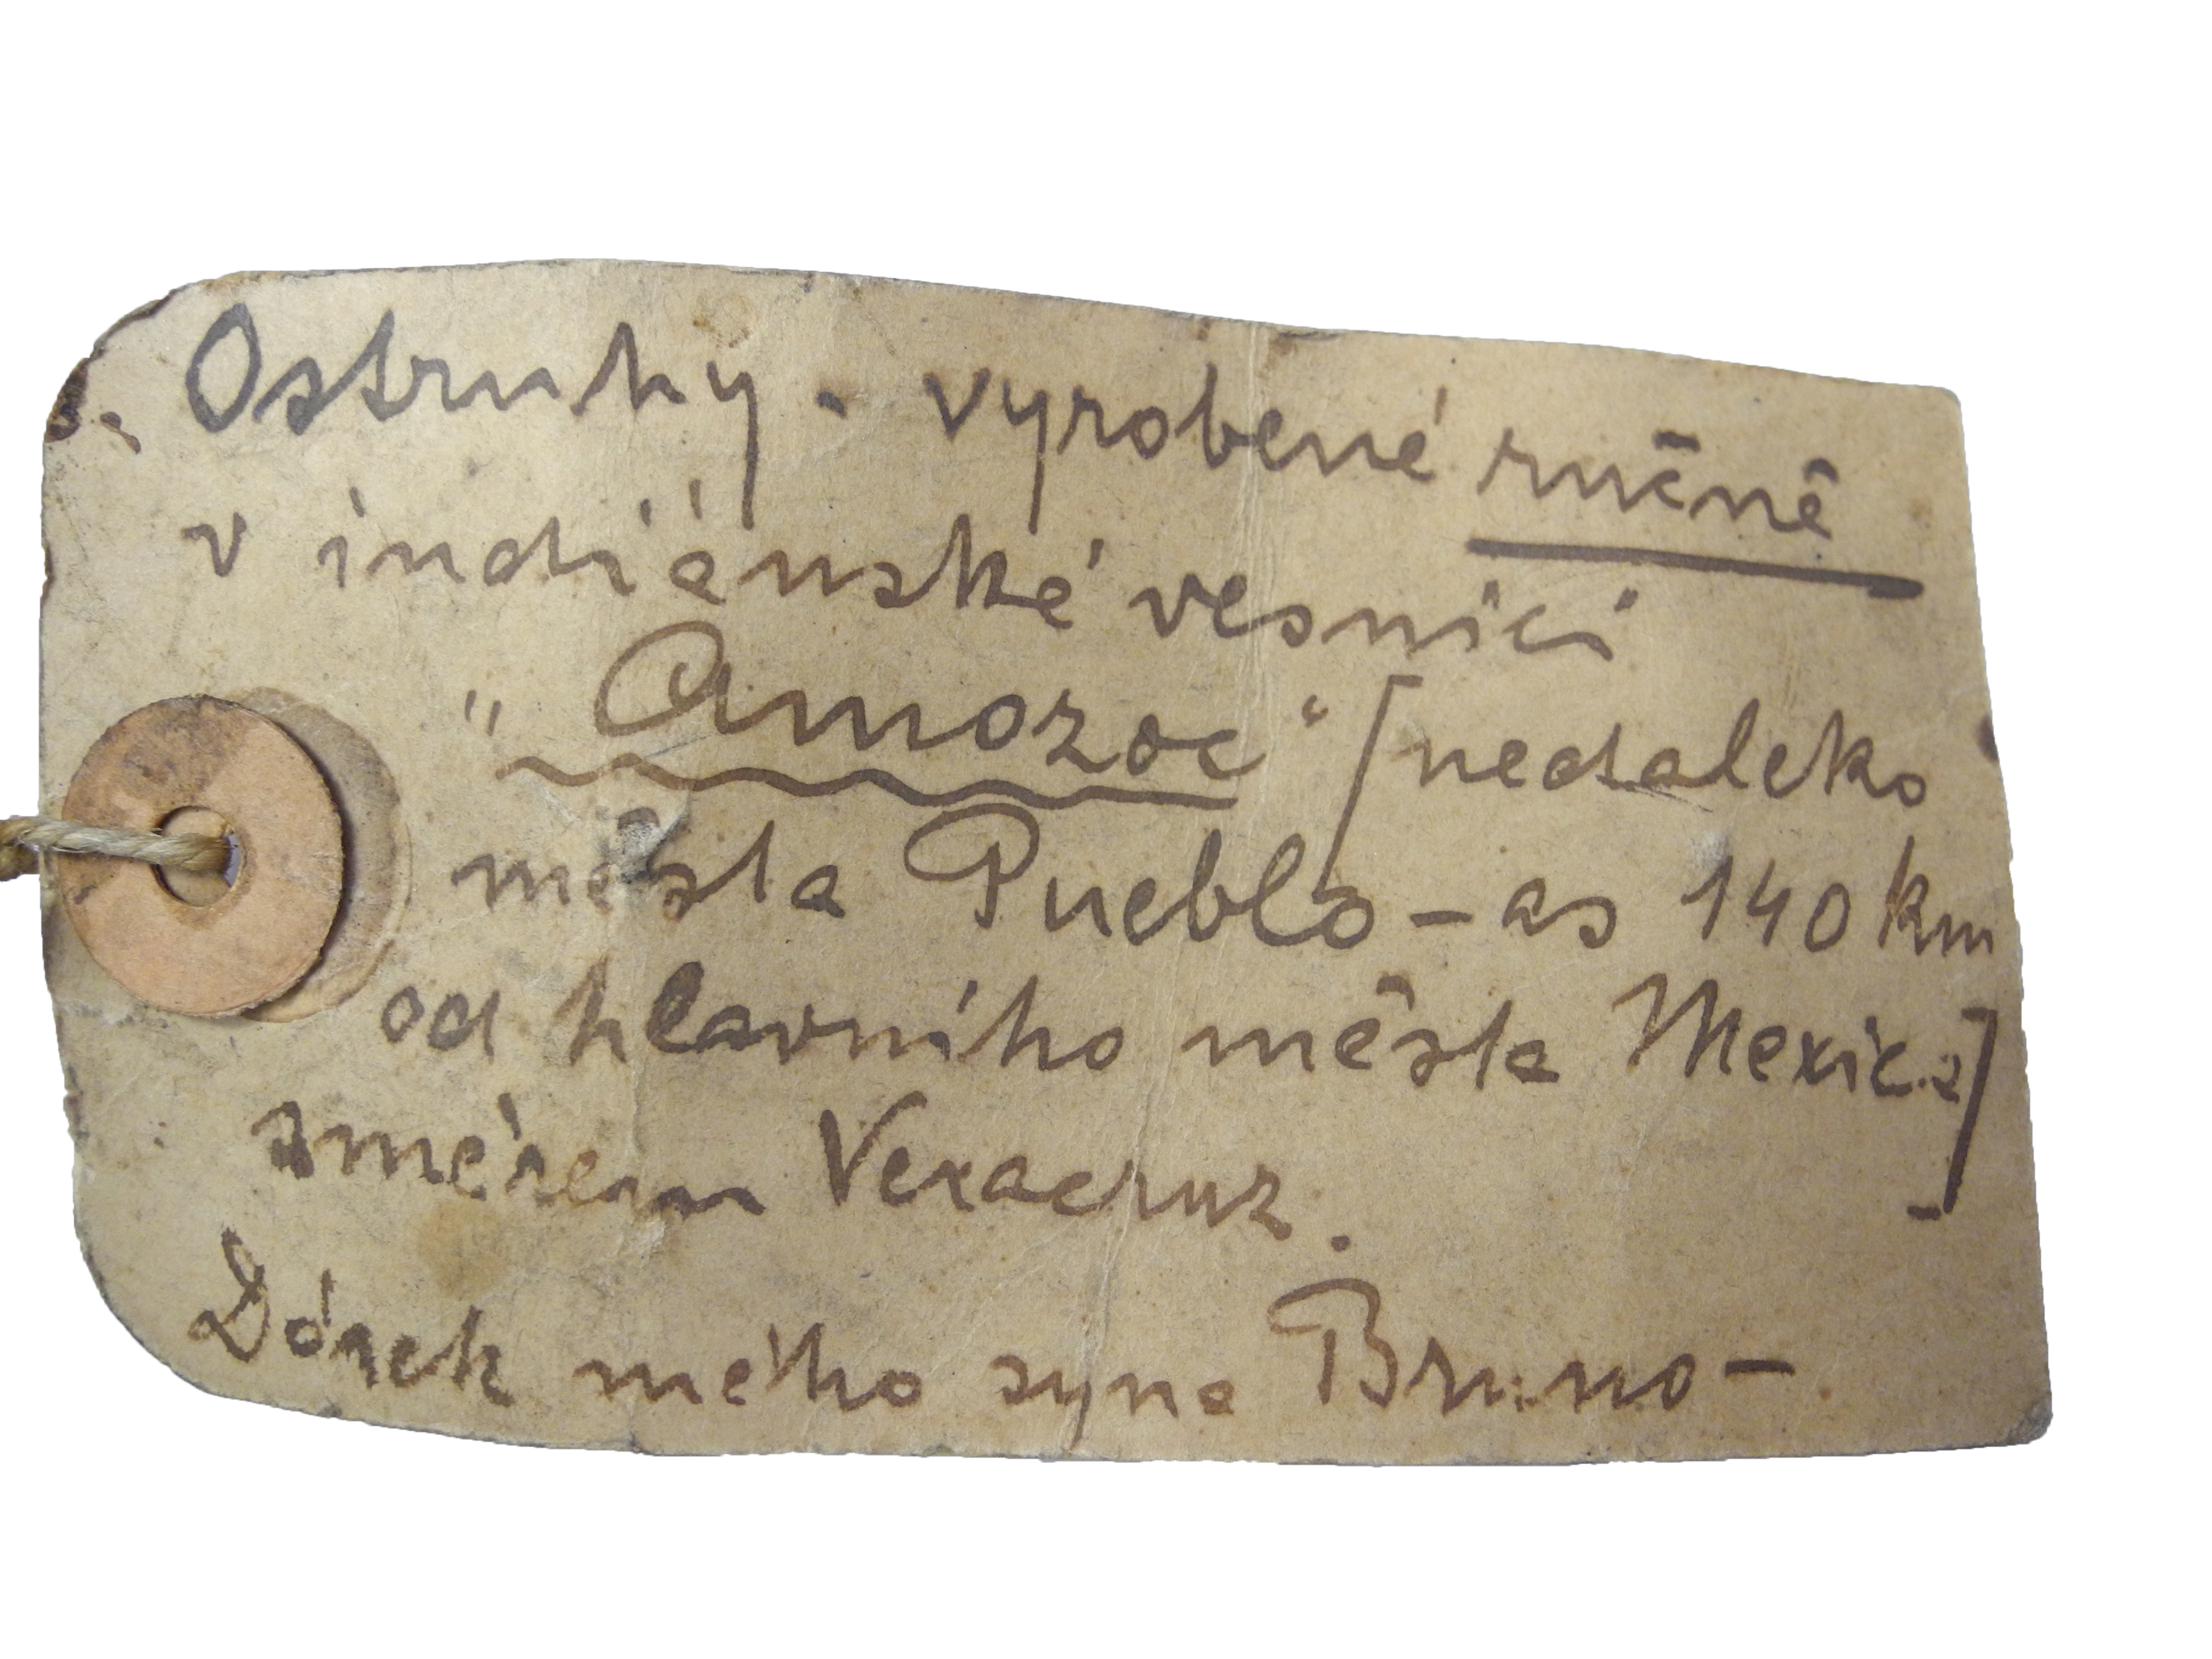 Ostruhy. vyrobené ručně
v indiánské vesnici
"Amozoc" [nedaleko
města Pueblo - as 140 km
od hlavního města Mexica]
směrem Veracruz.
Dárek mého syna Bruno -